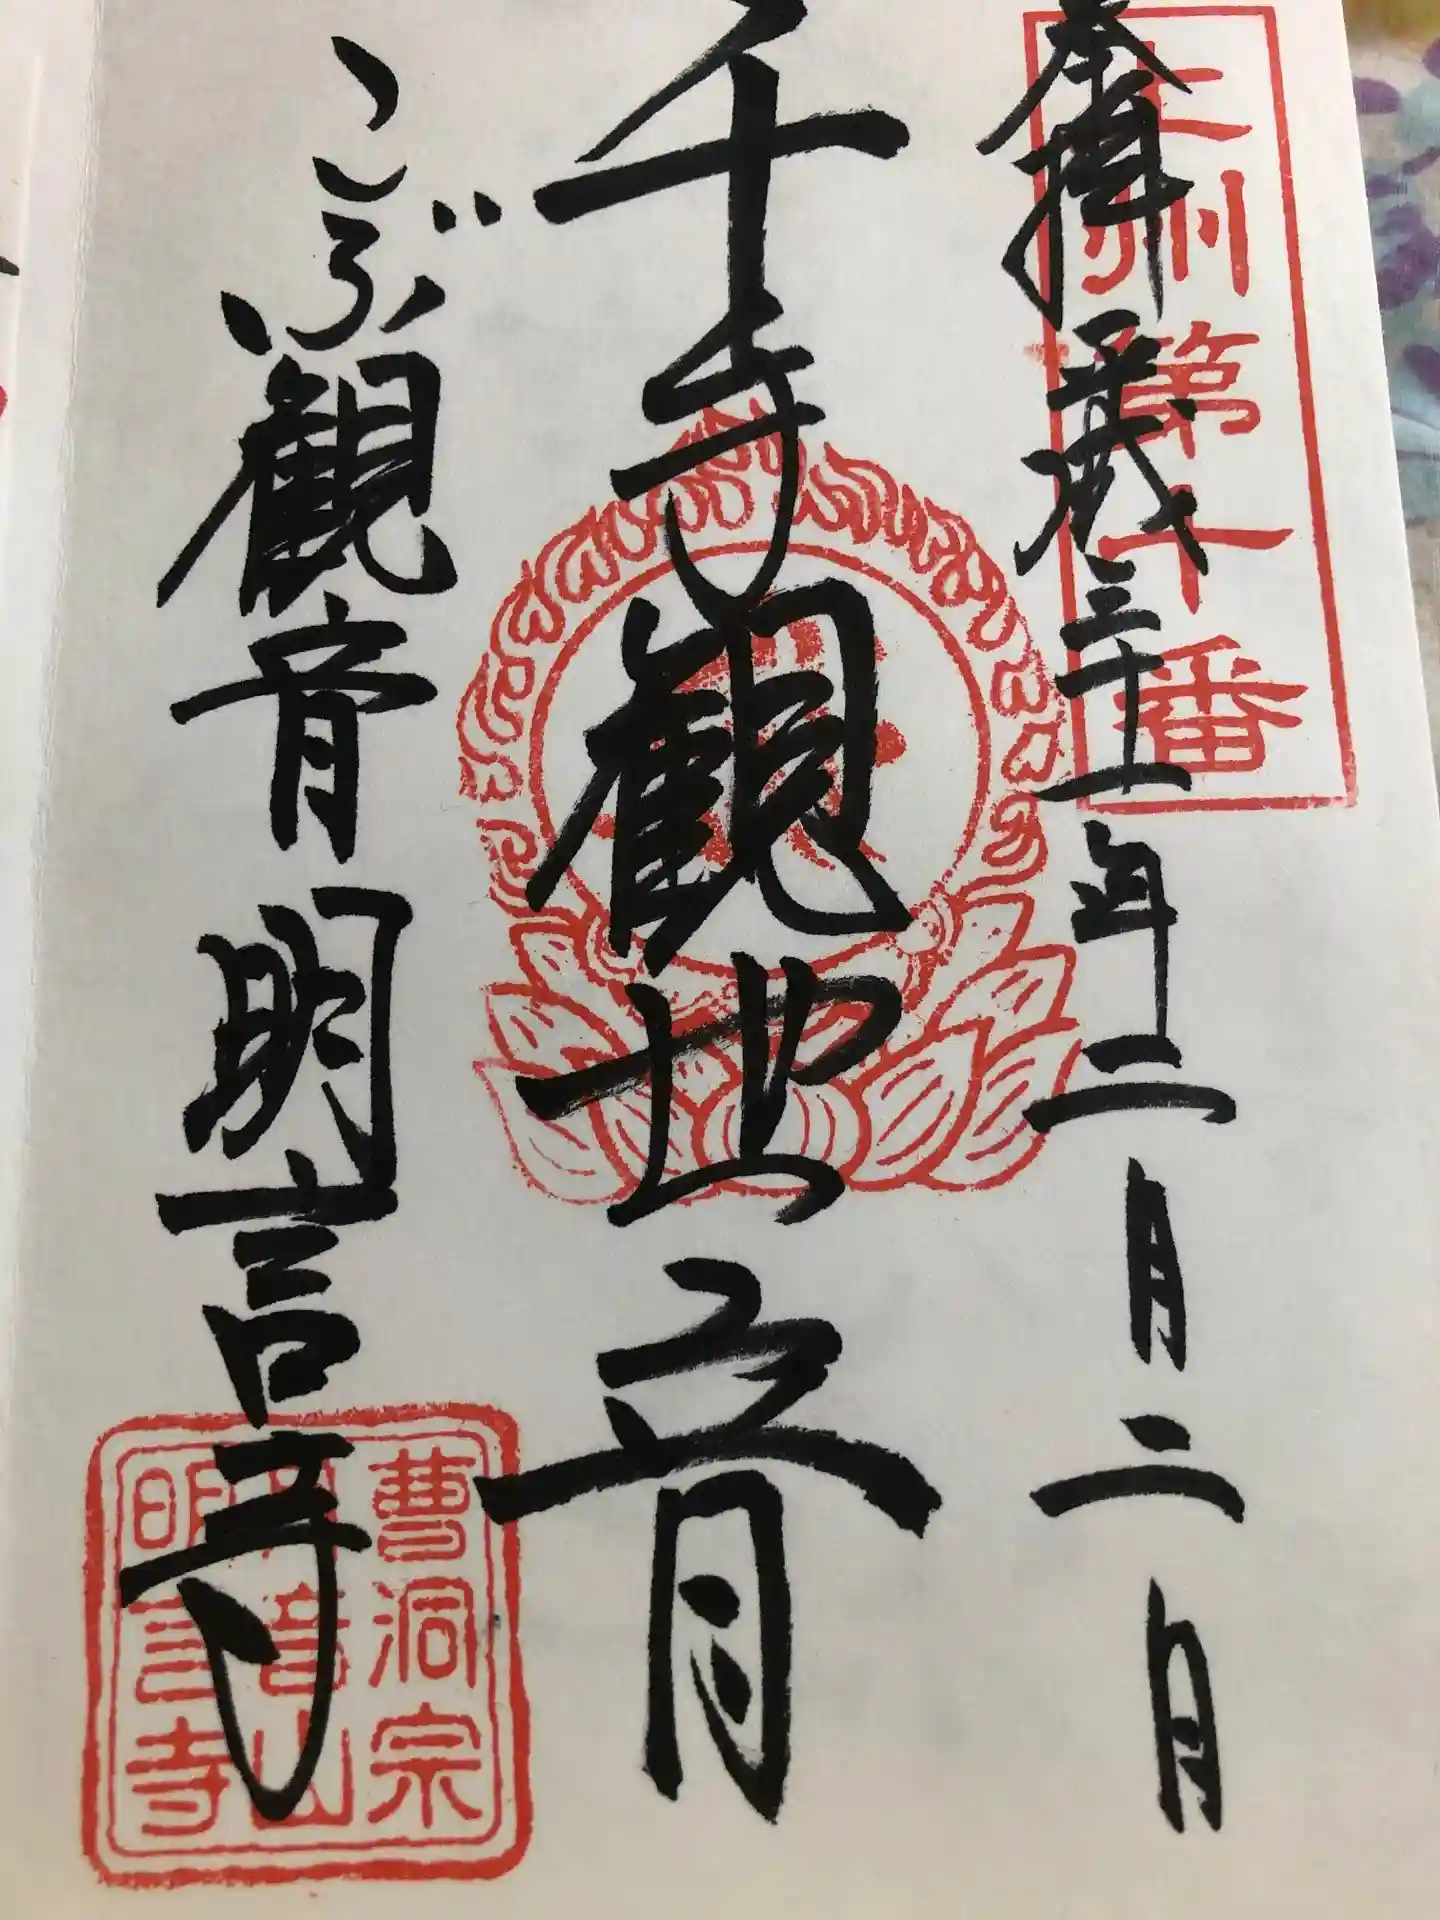 上州第十番
奉拝 平成三十一年二月二日
千手観世音
こぶ観音 明言寺
曹洞宗
音山
明言寺